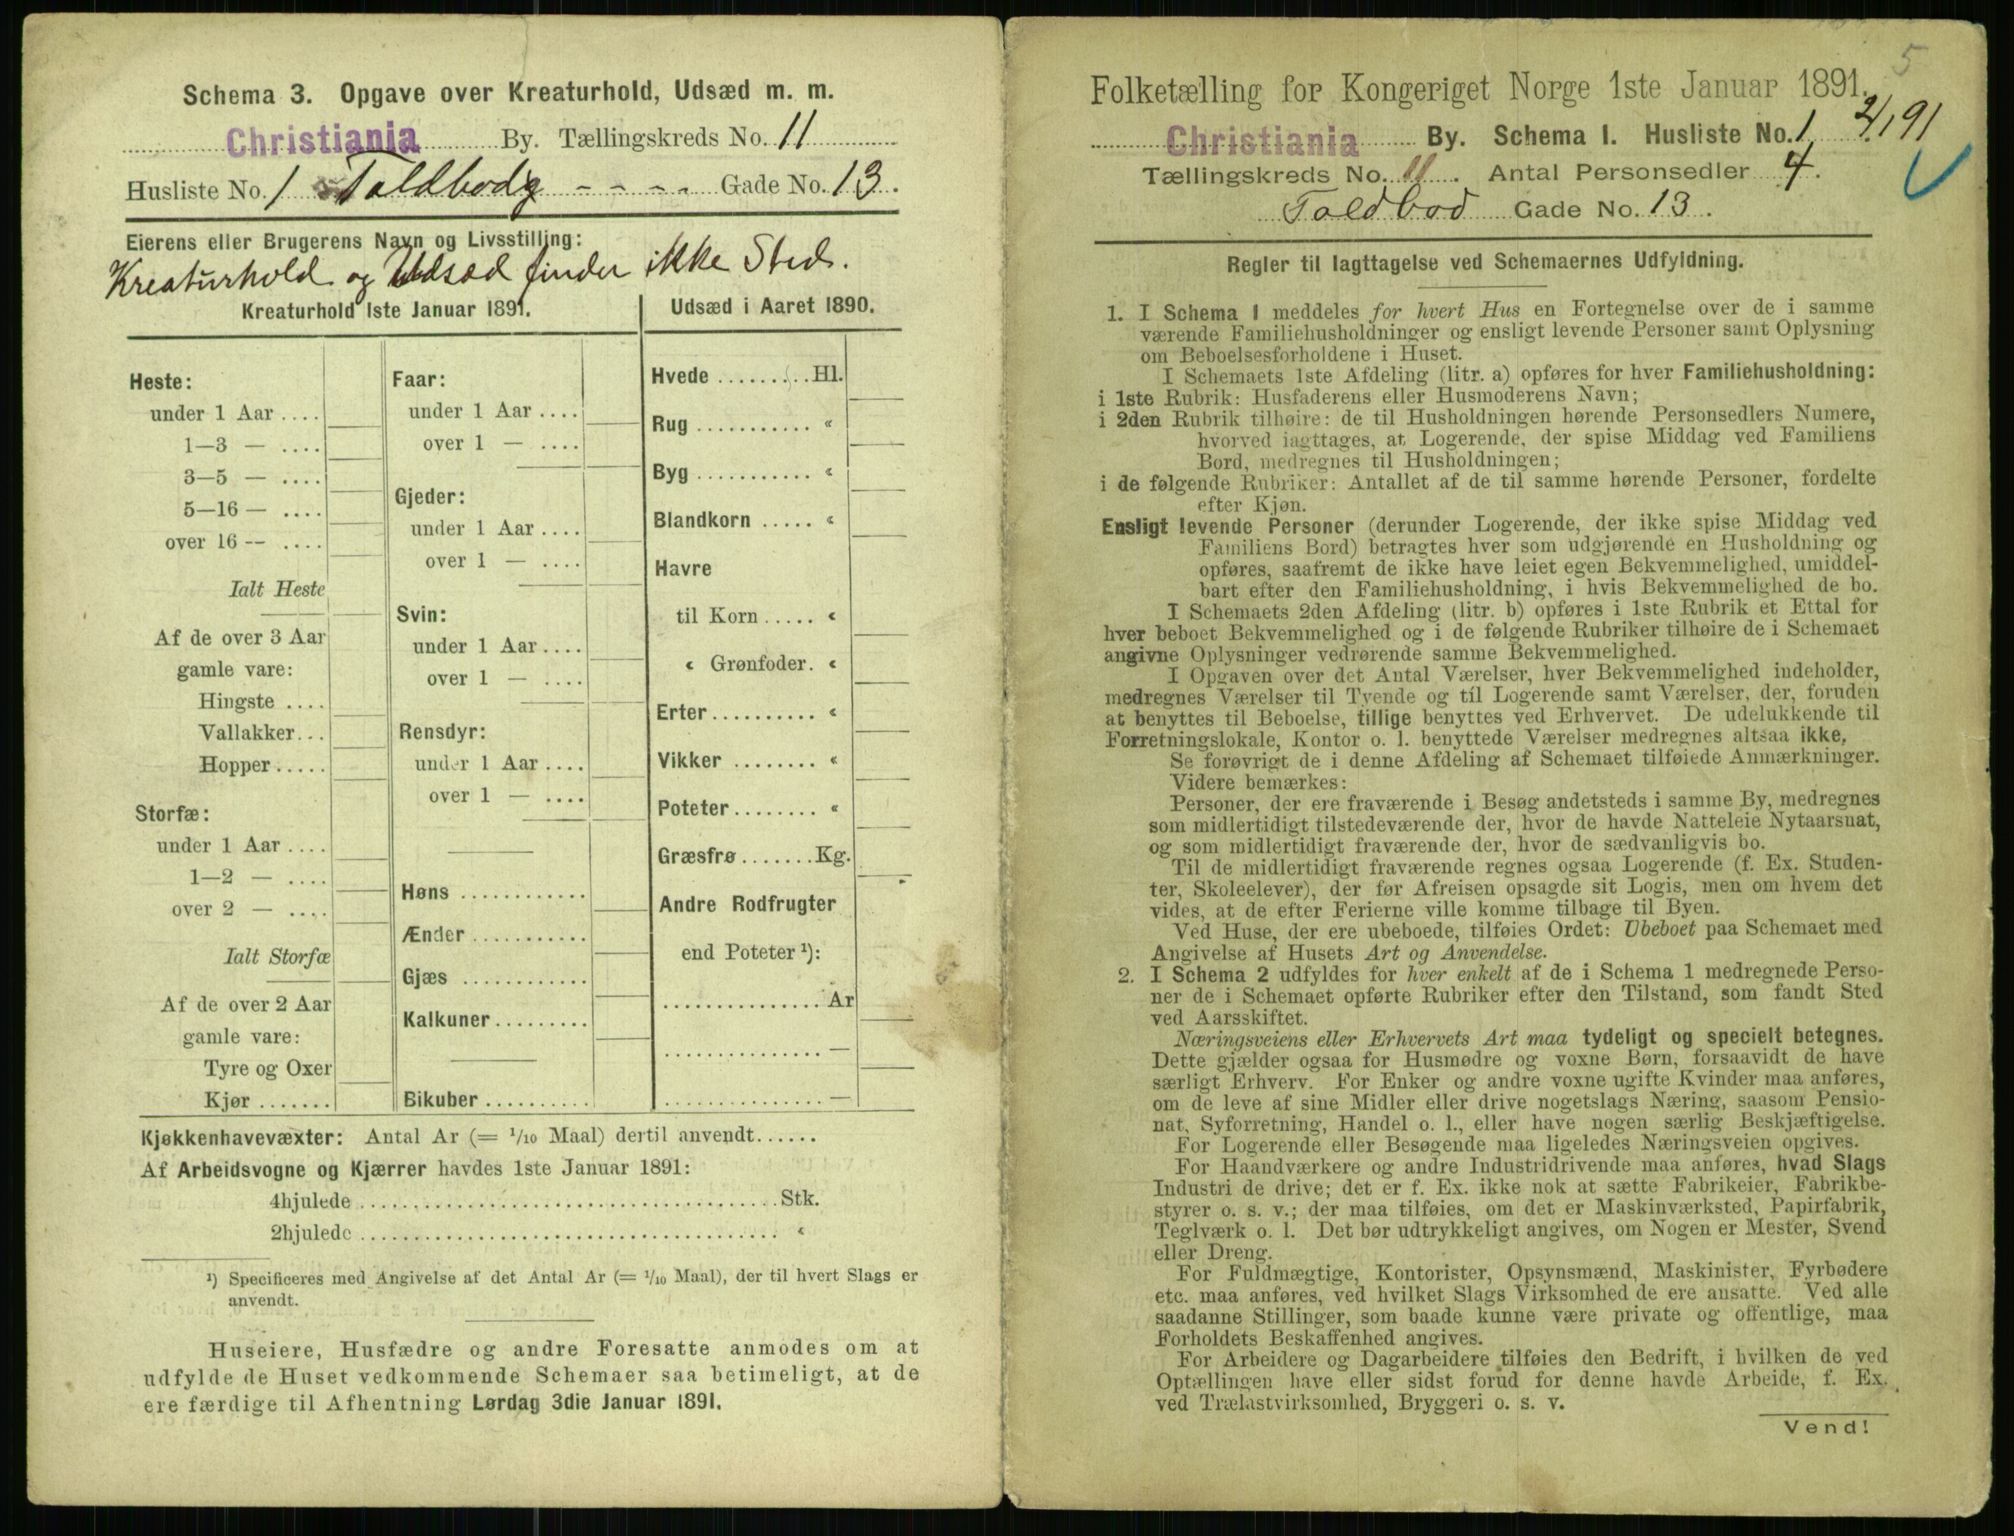 Schema 3. Opgave over Kreaturhold, Udsæd m. m.
Christiania By. Tællingskreds No. 11
Husliste No. 1 Toldbodg - - - - Gade No. 13.
Eierens eller Brugerens Navn og Livsstilling:
Kreaturhold og Udsæd finder ikke Sted.
Kreaturhold 1ste Januar 1891.
Heste:
under 1 Aar ....
1—3 — ....
3—5 — ....
5—16 — ....
over 16 -- ....
Ialt Heste
Af de over 3 Aar
gamle vare:
Hingste ....
Vallakker...
Hopper.....
Storfæ:
under 1 Aar ....
1—2 — ....
over 2 — ....
Ialt Storfæ
Af de over 2 Aar
gamle vare:
Tyre og Oxer
Kjør .......
Faar:
under 1 Aar ....
over 1 — ....
Gjeder:
under 1 Aar ....
over 1 — ....
Svin:
under 1 Aar ....
over 1 — ....
Rensdyr:
under 1 Aar ....
over 1 — ....
Høns ............
Ænder ...........
Gjæs ............
Kalkuner.........
Bikuber ..........
Udsæd i Aaret 1890.
Hvede ......... Hl.
Rug ........... «
Byg ........... «
Blandkorn ..... «
Havre
til Korn ..... «
« Grønfoder. «
Erter.......... «
Vikker ........ «
Poteter........ «
Græsfrø .......Kg.
Andre Rodfrugter
end Poteter ¹):
............... Ar
............... —
............... —
Kjøkkenhavevæxter: Antal Ar (= 1/10 Maal) dertil anvendt......
Af Arbeidsvogne og Kjærrer havdes 1ste Januar 1891:
4hjulede .................................... Stk.
2hjulede .................................... «
¹) Specificeres med Angivelse af det Antal Ar (= 1/10 Maal), der til hvert Slags er
anvendt.
Huseiere, Husfædre og andre Foresatte anmodes om at
udfylde de Huset vedkommende Schemaer saa betimeligt, at de
ere færdige til Afhentning Lørdag 3die Januar 1891.
5
Folketælling for Kongeriget Norge 1ste Januar 1891.
Christiania By. Schema 1. Husliste No. 1
Tællingskreds No. 11. Antal Personsedler 4.
Toldbod Gade No. 13.
Regler til Iagttagelse ved Schemaernes Udfyldning.
1. I Schema 1 meddeles for hvert Hus en Fortegnelse over de i samme
værende Familiehusholdninger og ensligt levende Personer samt Oplysning
om Beboelsesforholdene i Huset.
I Schemaets 1ste Afdeling (litr. a) opføres for hver Familiehusholdning:
i 1ste Rubrik: Husfaderens eller Husmoderens Navn;
i 2den Rubrik tilhøire: de til Husholdningen hørende Personsedlers Numere,
hvorved iagttages, at Logerende, der spise Middag ved Familiens
Bord, medregnes til Husholdningen;
i de følgende Rubriker: Antallet af de til samme hørende Personer, fordelte
efter Kjøn.
Ensligt levende Personer (derunder Logerende, der ikke spise Middag ved
Familiens Bord) betragtes hver som udgjørende en Husholdning og
opføres, saafremt de ikke have leiet egen Bekvemmelighed, umiddel-
bart efter den Familiehusholdning, i hvis Bekvemmelighed de bo.
I Schemaets 2den Afdeling (litr. b) opføres i 1ste Rubrik et Ettal for
hver beboet Bekvemmelighed og i de følgende Rubriker tilhøire de i Schemaet
angivne Oplysninger vedrørende samme Bekvemmelighed.
I Opgaven over det Antal Værelser, hver Bekvemmelighed indeholder,
medregnes Værelser til Tyende og til Logerende samt Værelser, der, foruden
at benyttes til Beboelse, tillige benyttes ved Erhvervet. De udelukkende til
Forretningslokale, Kontor o. l. benyttede Værelser medregnes altsaa ikke.
Se forøvrigt de i denne Afdeling af Schemaet tilføiede Anmærkninger.
Videre bemærkes:
Personer, der ere fraværende i Besøg andetsteds i samme By, medregnes
som midlertidigt tilstedeværende der, hvor de havde Natteleie Nytaarsnat,
og som midlertidigt fraværende der, hvor de sædvanligvis bo.
Til de midlertidigt fraværende regnes ogsaa Logerende (f. Ex. Studen-
ter, Skoleelever), der før Afreisen opsagde sit Logis, men om hvem det
vides, at de efter Ferierne ville komme tilbage til Byen.
Ved Huse, der ere ubeboede, tilføies Ordet: Ubeboet paa Schemaet med
Angivelse af Husets Art og Anvendelse.
2. I Schema 2 udfyldes for hver enkelt af de i Schema 1 medregnede Perso-
ner de i Schemaet opførte Rubriker efter den Tilstand, som fandt Sted
ved Aarsskiftet.
Næringsveiens eller Erhvervets Art maa tydeligt og specielt betegnes.
Dette gjælder ogsaa for Husmødre og voxne Børn, forsaavidt de have
særligt Erhverv. For Enker og andre voxne ugifte Kvinder maa anføres,
om de leve af sine Midler eller drive nogetslags Næring, saasom Pensio-
nat, Syforretning, Handel o. l., eller have nogen særlig Beskjæftigelse.
For Logerende eller Besøgende maa ligeledes Næringsveien opgives.
For Haandværkere og andre Industridrivende maa anføres, hvad Slags
Industri de drive; det er f. Ex. ikke nok at sætte Fabrikeier, Fabrikbe-
styrer o. s. v.; der maa tilføies, om det er Maskinværksted, Papirfabrik,
Teglværk o. l. Det bør udtrykkeligt angives, om Nogen er Mester, Svend
eller Dreng.
For Fuldmægtige, Kontorister, Opsynsmænd, Maskinister, Fyrbødere
etc. maa anføres, ved hvilket Slags Virksomhed de ere ansatte. Ved alle
saadanne Stillinger, som baade kunne være private og offentlige, maa
Forholdets Beskaffenhed angives.
For Arbeidere og Dagarbeidere tilføies den Bedrift, i hvilken de ved
Optællingen have eller sidst forud for denne havde Arbeide, f. Ex.
ved Trælastvirksomhed, Bryggeri o. s. v.
Vend!